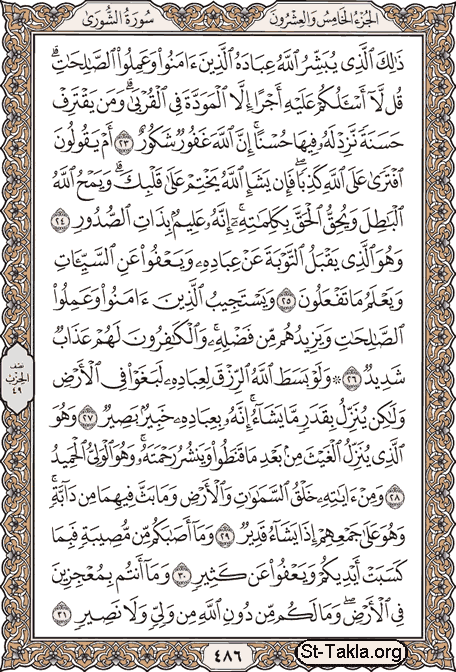 الجزء الخامس والعشرون
سورة الشورى
ذَٰلِكَ ٱلَّذِي يُبَشِّرُ ٱللَّهُ عِبَادَهُ ٱلَّذِينَ ءَامَنُواْ وَعَمِلُواْ ٱلصَّٰلِحَٰتِۗ
قُل لَّآ أَسۡـَٔلُكُمۡ عَلَيۡهِ أَجۡرًا إِلَّا ٱلۡمَوَدَّةَ فِي ٱلۡقُرۡبَىٰۗ وَمَن يَقۡتَرِفۡ
حَسَنَةٗ نَّزِدۡ لَهُۥ فِيهَا حُسۡنًاۚ إِنَّ ٱللَّهَ غَفُورٞ شَكُورٌ ٢٣ أَمۡ يَقُولُونَ
ٱفۡتَرَىٰ عَلَى ٱللَّهِ كَذِبٗاۖ فَإِن يَشَإِ ٱللَّهُ يَخۡتِمۡ عَلَىٰ قَلۡبِكَۗ وَيَمۡحُ ٱللَّهُ
ٱلۡبَٰطِلَ وَيُحِقُّ ٱلۡحَقَّ بِكَلِمَٰتِهِۦٓۚ إِنَّهُۥ عَلِيمُۢ بِذَاتِ ٱلصُّدُورِ ٢٤
وَهُوَ ٱلَّذِي يَقۡبَلُ ٱلتَّوۡبَةَ عَنۡ عِبَادِهِۦ وَيَعۡفُواْ عَنِ ٱلسَّيِّـَٔاتِ
وَيَعۡلَمُ مَا تَفۡعَلُونَ ٢٥ وَيَسۡتَجِيبُ ٱلَّذِينَ ءَامَنُواْ وَعَمِلُواْ
ٱلصَّٰلِحَٰتِ وَيَزِيدُهُم مِّن فَضۡلِهِۦۚ وَٱلۡكَٰفِرُونَ لَهُمۡ عَذَابٞ
شَدِيدٞ ٢٦ ۞ وَلَوۡ بَسَطَ ٱللَّهُ ٱلرِّزۡقَ لِعِبَادِهِۦ لَبَغَوۡاْ فِي ٱلۡأَرۡضِ
وَلَٰكِن يُنَزِّلُ بِقَدَرٖ مَّا يَشَآءُۚ إِنَّهُۥ بِعِبَادِهِۦ خَبِيرُۢ بَصِيرٞ ٢٧ وَهُوَ
ٱلَّذِي يُنَزِّلُ ٱلۡغَيۡثَ مِنۢ بَعۡدِ مَا قَنَطُواْ وَيَنشُرُ رَحۡمَتَهُۥۚ وَهُوَ ٱلۡوَلِيُّ ٱلۡحَمِيدُ
٢٨ وَمِنۡ ءَايَٰتِهِۦ خَلۡقُ ٱلسَّمَٰوَٰتِ وَٱلۡأَرۡضِ وَمَا بَثَّ فِيهِمَا مِن دَآبَّةٖۚ
وَهُوَ عَلَىٰ جَمۡعِهِمۡ إِذَا يَشَآءُ قَدِيرٞ ٢٩ وَمَآ أَصَٰبَكُم مِّن مُّصِيبَةٖ فَبِمَا
كَسَبَتۡ أَيۡدِيكُمۡ وَيَعۡفُواْ عَن كَثِيرٖ ٣٠ وَمَآ أَنتُم بِمُعۡجِزِينَ
فِي ٱلۡأَرۡضِۖ وَمَا لَكُم مِّن دُونِ ٱللَّهِ مِن وَلِيّٖ وَلَا نَصِيرٖ ٣١
نصف
الحزب
٤٩
٤٨٦
St-Takla.org